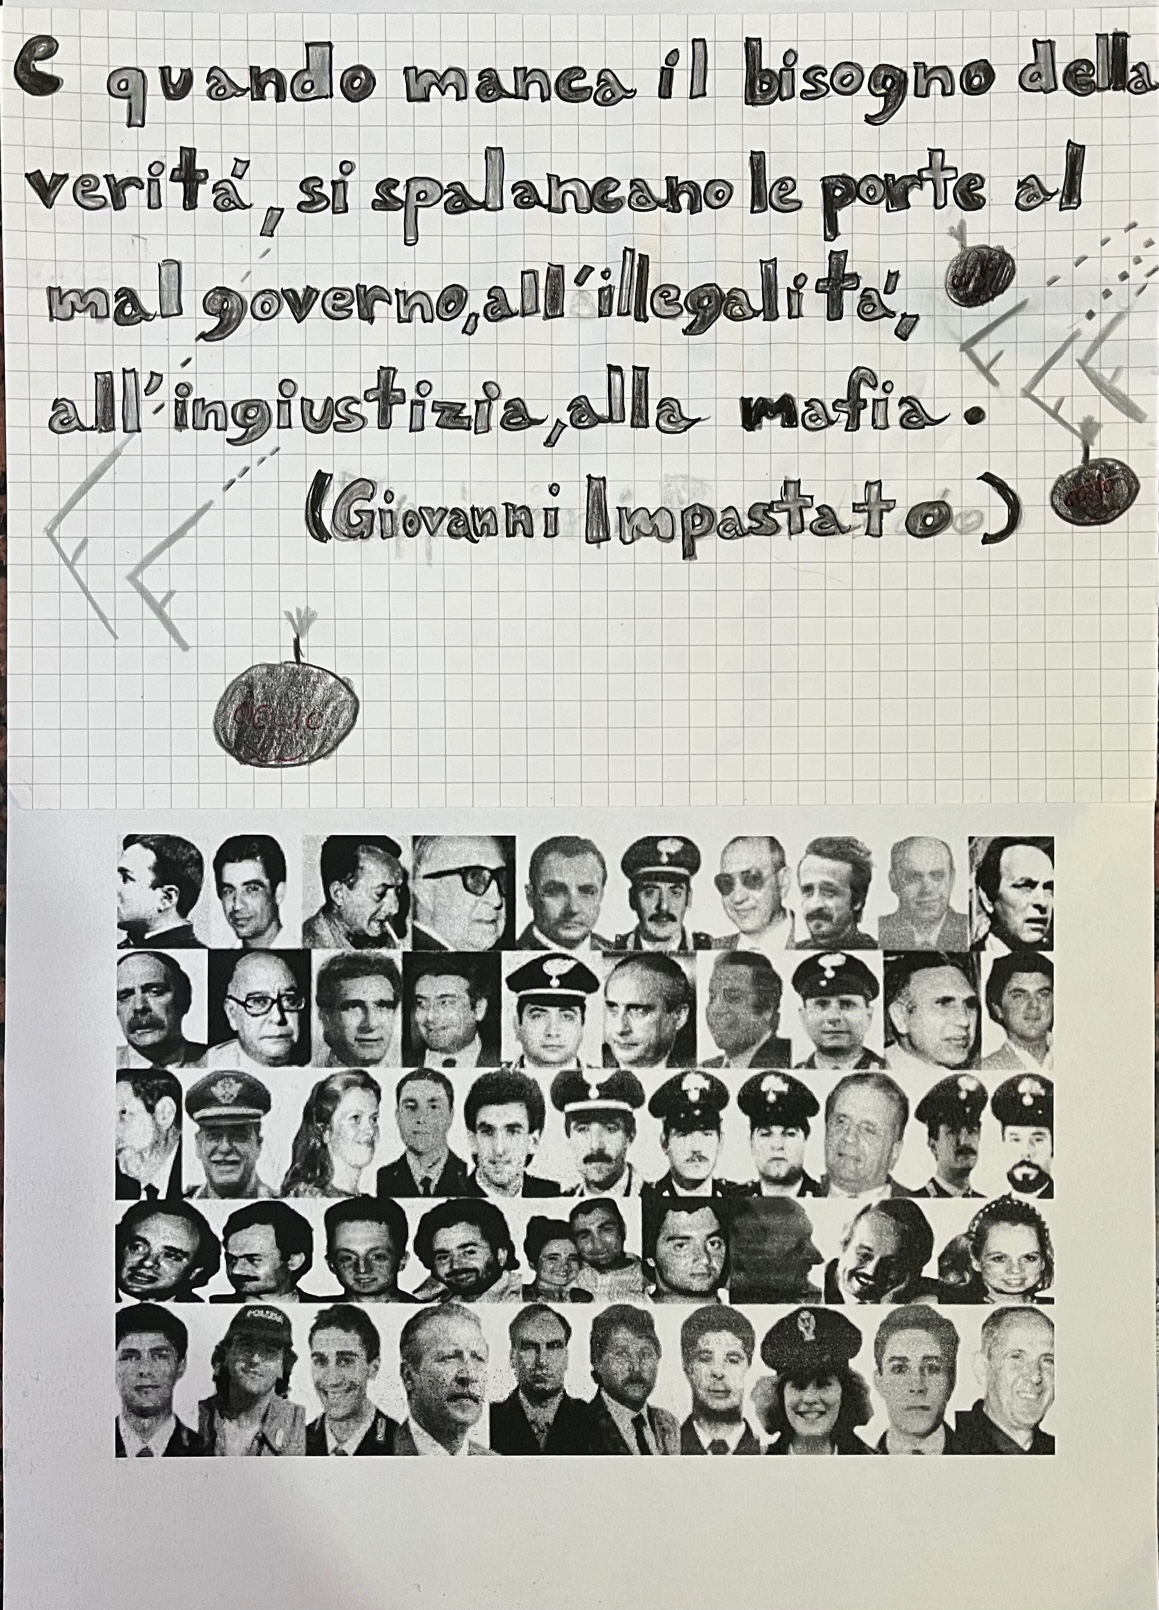 E quando manca il bisogno della
veritá, si spalancano le porte al
mal governo, all'illegalitá,
all'ingiustizia, alla mafia.
(Giovanni Impastato)
POLIZIA